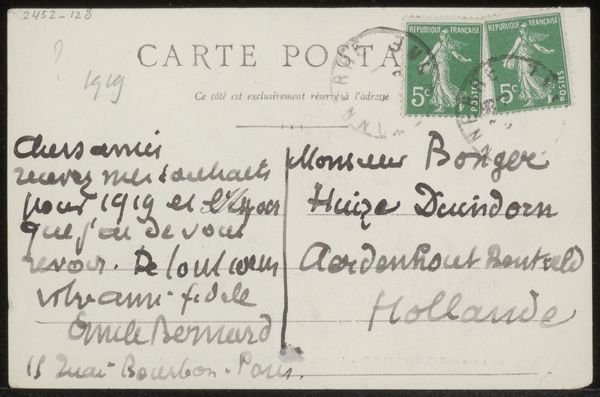 2452-128
?
1919
CARTE POSTA
Ce côté est exclusivement réservé à l'adresse
REPUBLIQUE FRANÇAISE
5c
POSTES
REPUBLIQUE FRANÇAISE
5c
POSTES
Chers amis
recevez mes souhaits
pour 1919 et l'espoir
que j'ai de vous
revoir. De tout coeur
votre ami fidele
Emile Bernard
15 Quai Bourbon. Paris.
Monsieur Bonger
Huize Duindorn
Aerdenhout Bentveld
Hollande